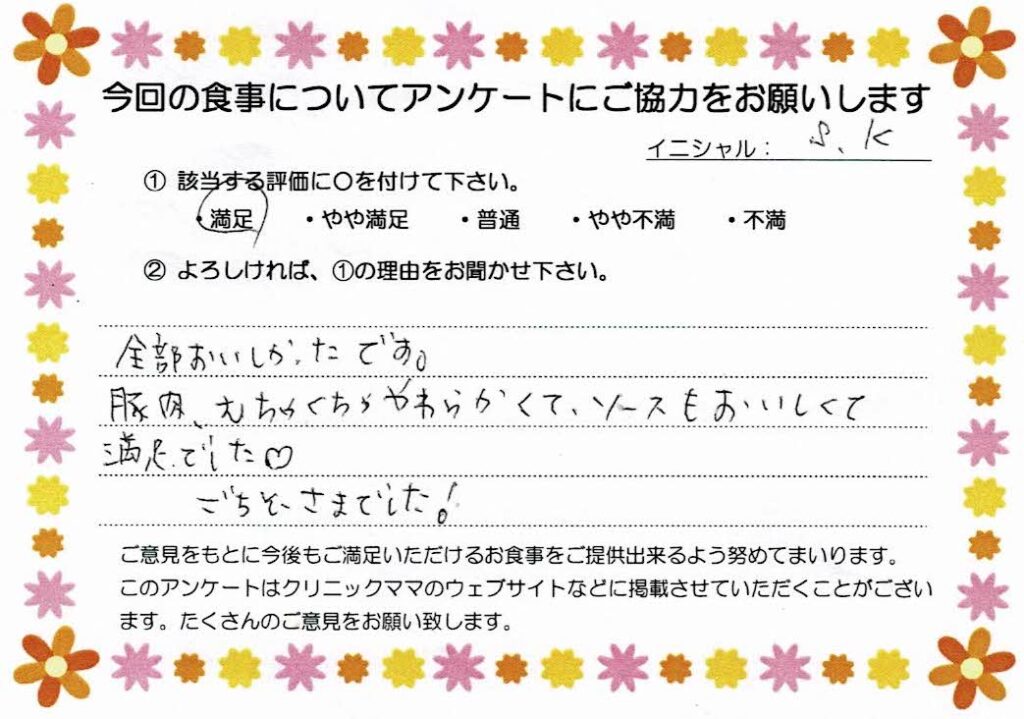 今回の食事についてアンケートにご協力をお願いします
イニシャル： S、K
① 該当する評価に〇を付けて下さい。
・満足 ・やや満足 ・普通 ・やや不満 ・不満
② よろしければ、①の理由をお聞かせ下さい。
全部おいしかったです。
豚肉、むちゃくちゃやわらかくて、ソースもおいしくて
満足でした♡
ごちそーさまでした！
ご意見をもとに今後もご満足いただけるお食事をご提供出来るよう努めてまいります。
このアンケートはクリニックママのウェブサイトなどに掲載させていただくことがござい
ます。たくさんのご意見をお願い致します。